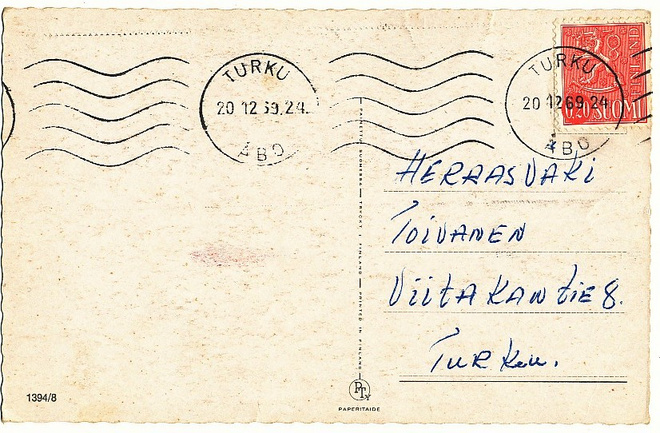 TURKU
20 12 69. 24.
ÅBO
TURKU
20 12 69. 24
ÅBO
0,20 SUOMI
HERRASVÄKI
TOIVANEN
ViiTAKANtiE 8.
TURKU.
PRINTED IN FINLAND
1394/8
PTy
PAPERITAIDE